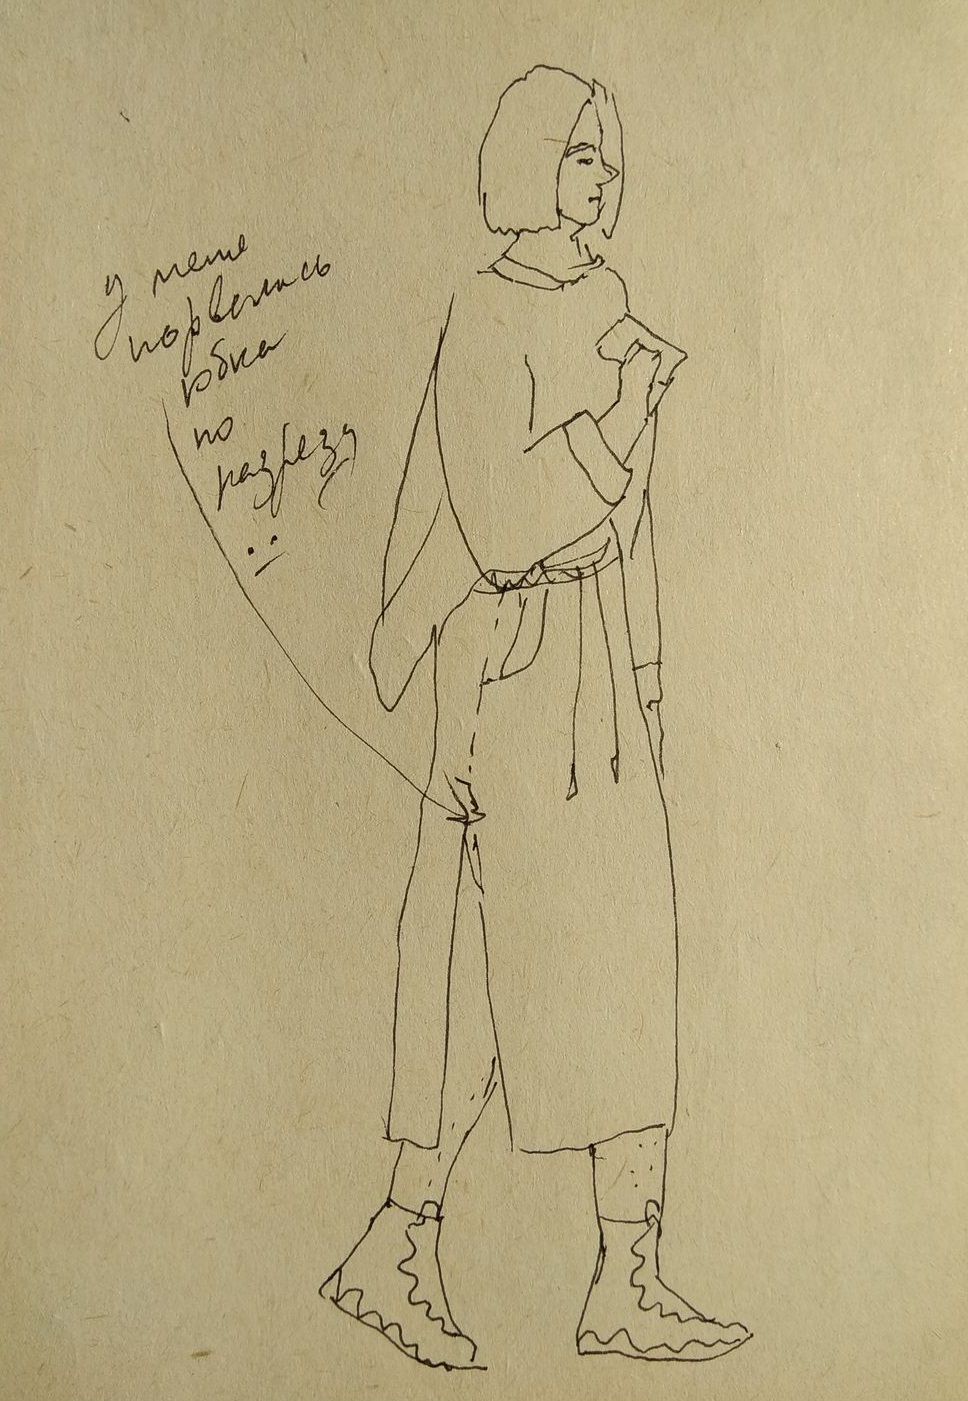 у меня
порвалась
юбка
по
разрезу
:(